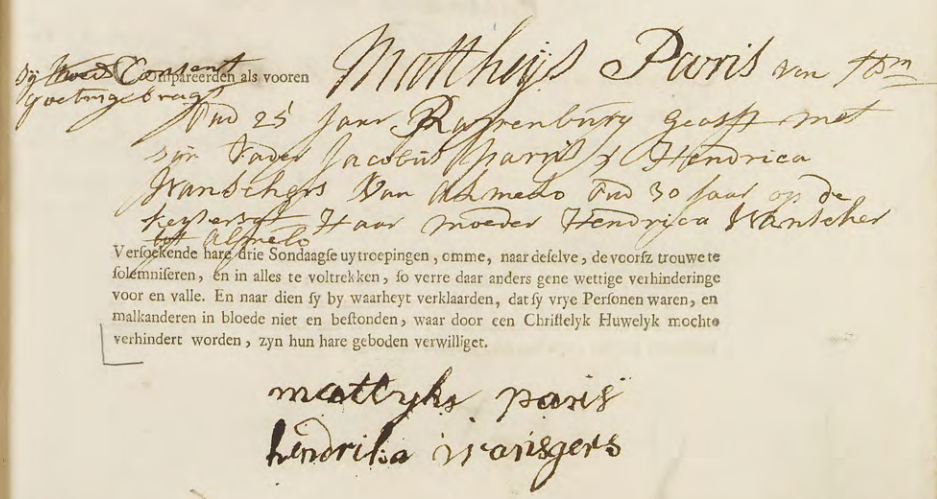 sij Consent
goet ingebragt
Compareerden als vooren Matthijs Paris van Adm
Oud 25 Jaar Rapenburg geass met
sijn Vader Jacobus Parris & Hendrica
Wanschers Van Almelo Oud 30 Jaar op de
Keysersgt Haar moeder Hendrica Wanscher
tot Almelo
Versoekende hare drie Sondaagse uytroepingen, omme, naar deselve, de voorsz trouwe te
solemniseren, en in alles te voltrekken, so verre daar anders gene wettige verhinderinge
voor en valle. En naar dien sy by waarheyt verklaarden, dat sy vrye Personen waren, en
malkanderen in bloede niet en bestonden, waar door een Christelyk Huwelyk mochte
verhindert worden, zyn hun hare geboden verwilliget.
mattyhs paris
hendrika wansgers